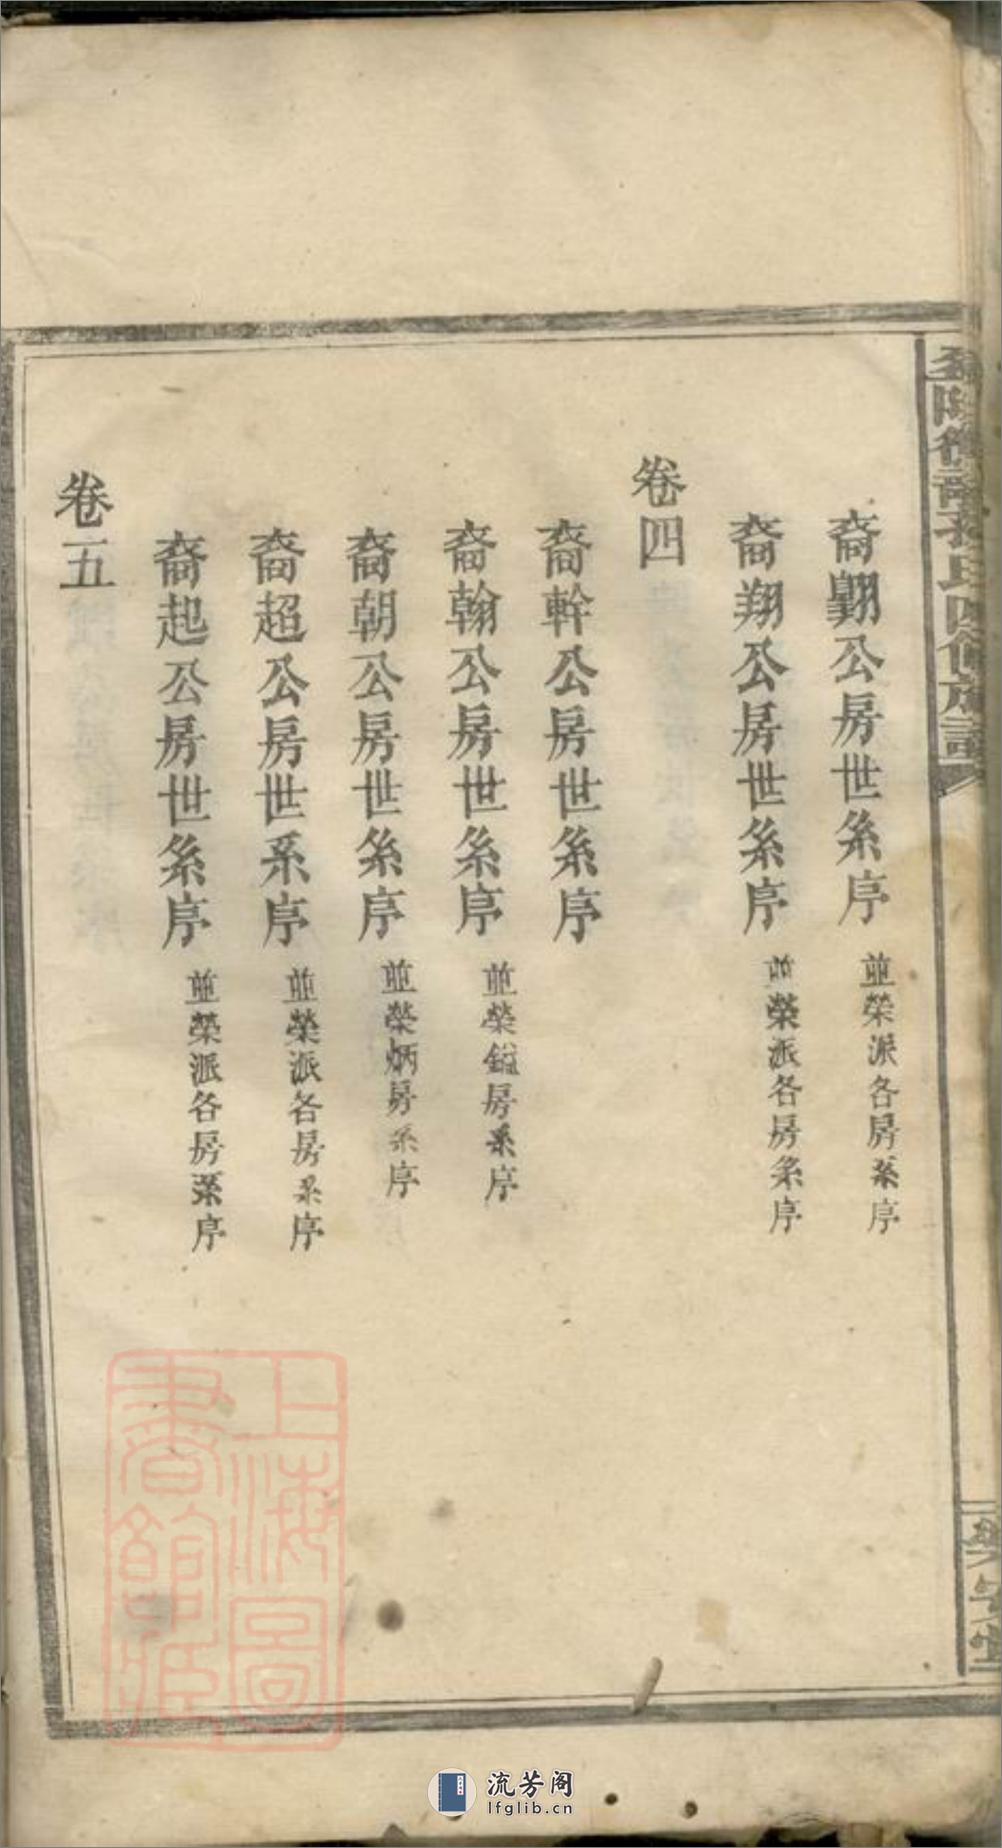 裔翺公房世系序 並榮派各房系序
裔翔公房世系序 並榮派各房系序
卷四
裔幹公房世系序
裔翰公房世系序 並榮鎰房系序
裔朝公房世系序 並榮炳房系序
裔超公房世系序 並榮派各房系序
裔起公房世系序 並榮派各房系序
卷五
上海圖書館藏
流芳阁
lfglib.cn